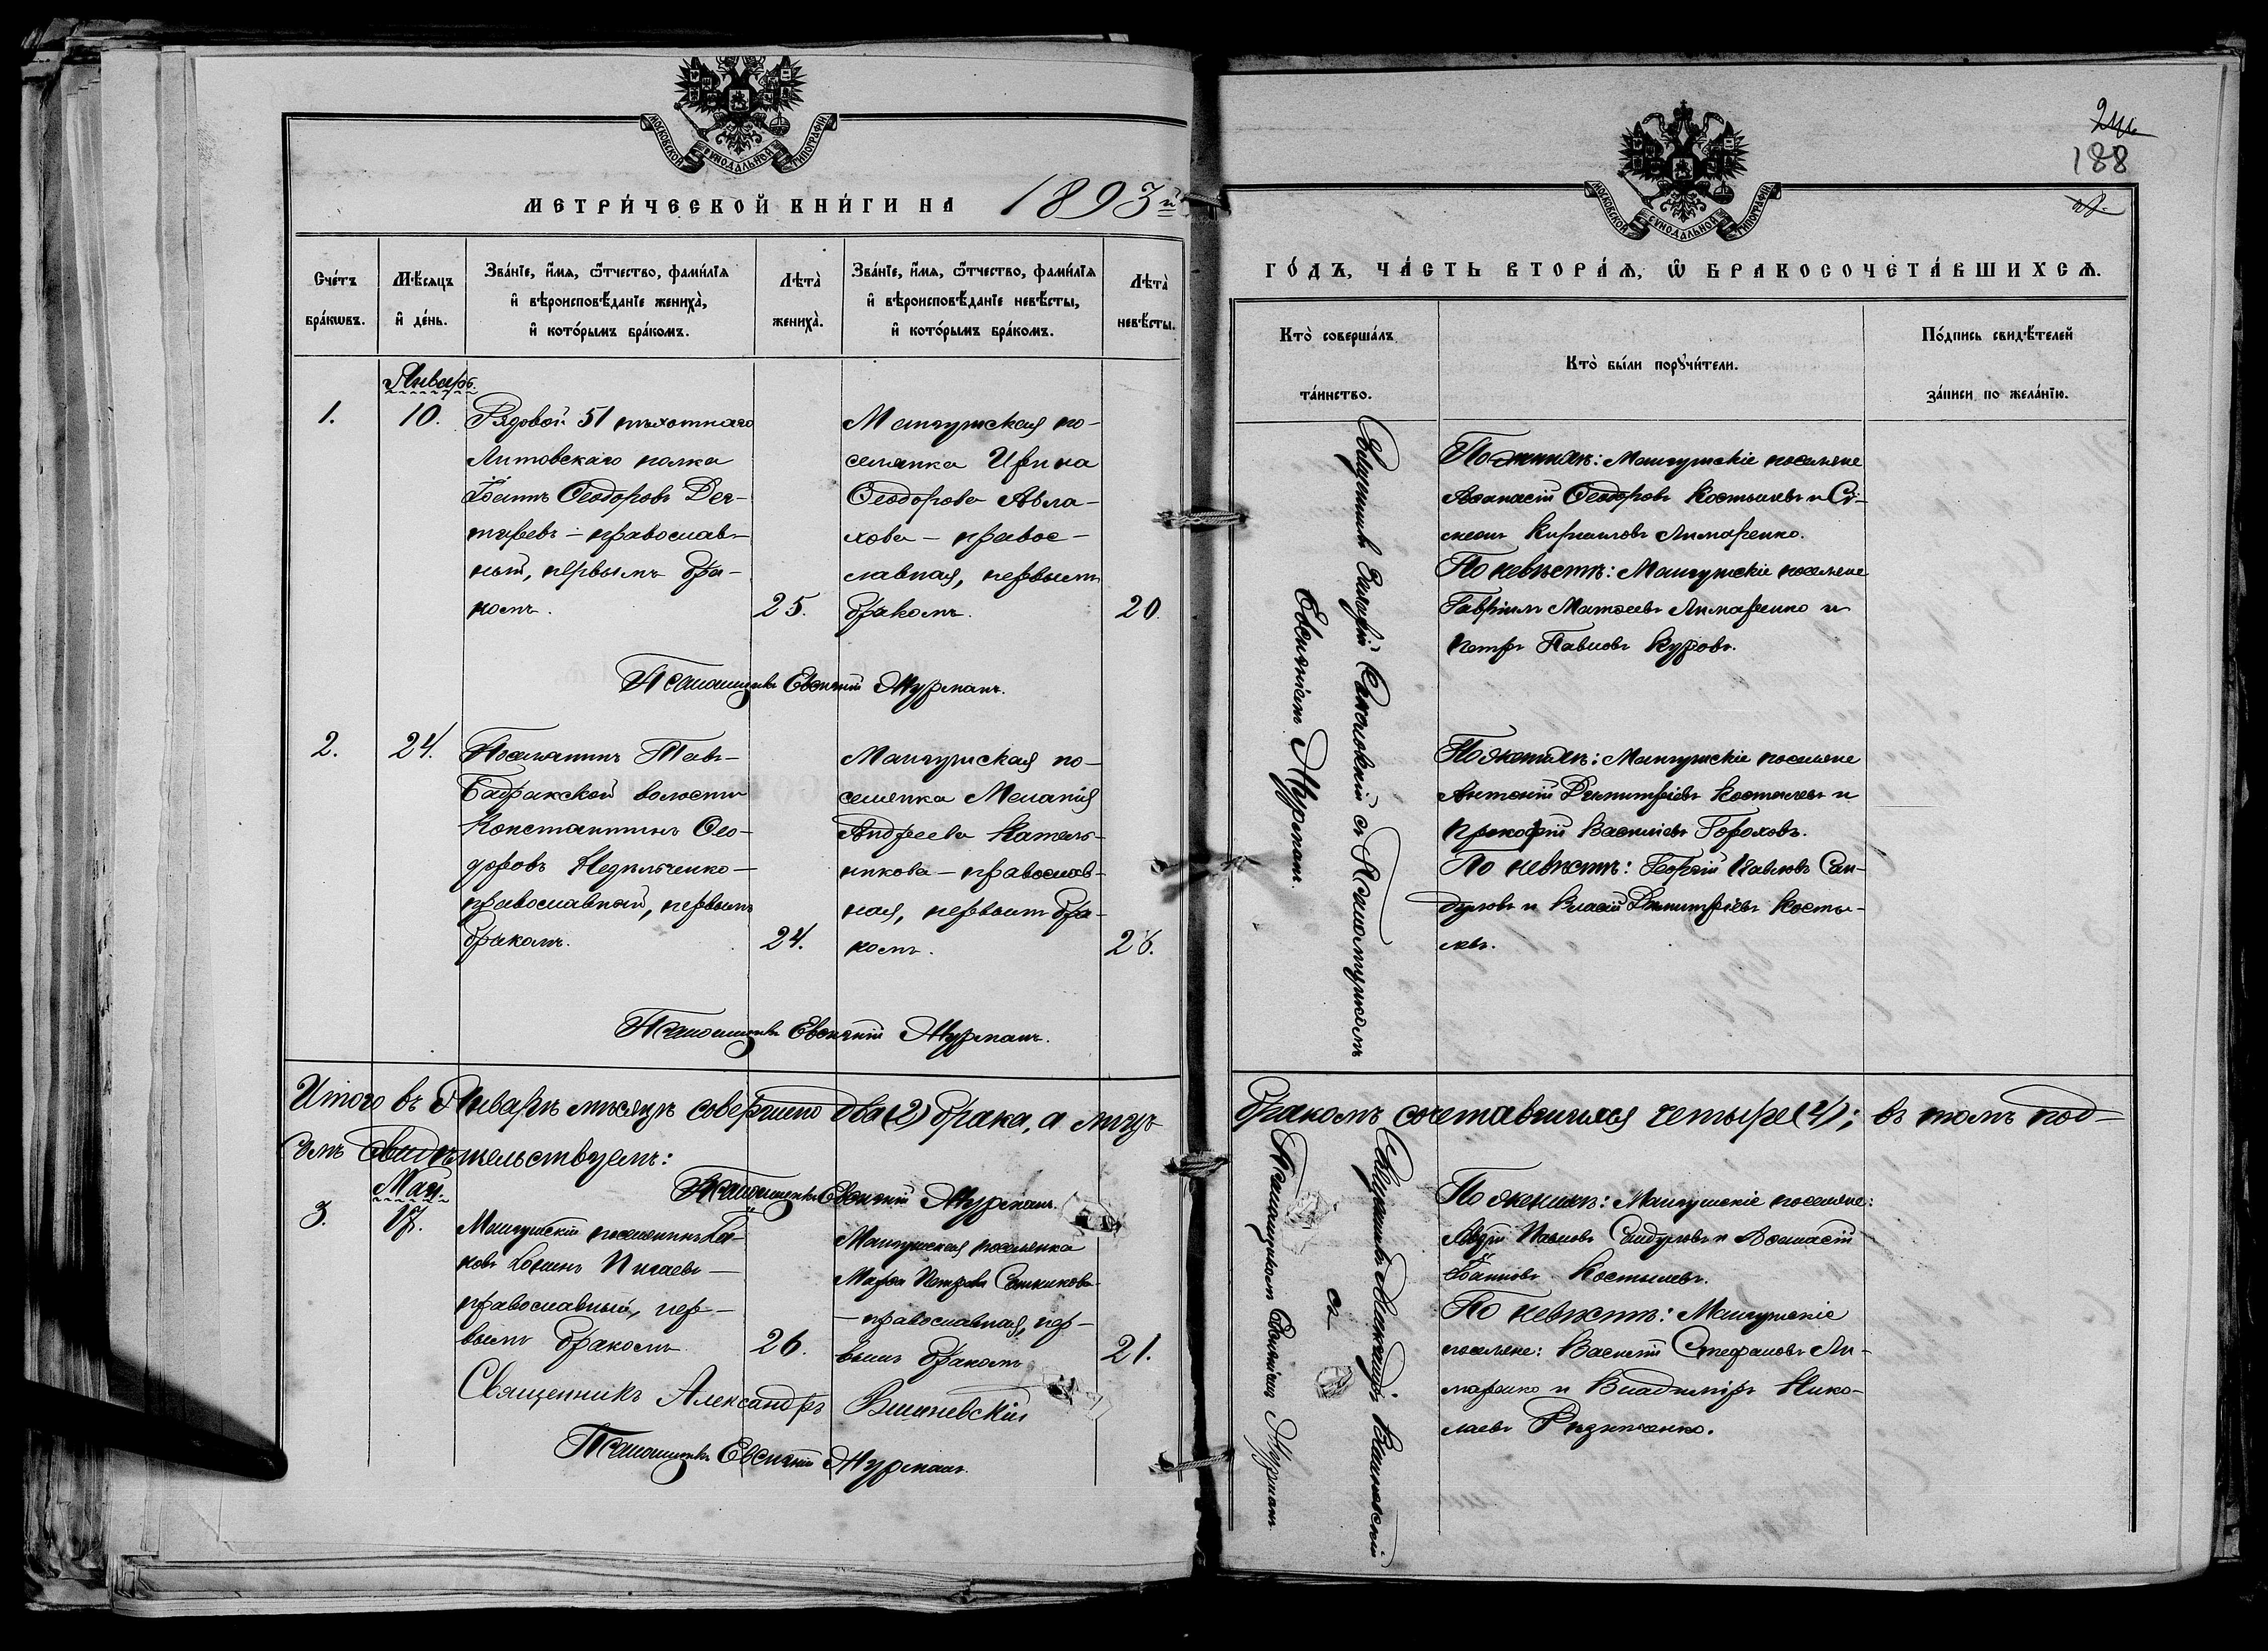 МОСКОВСКОЙ СѴНОДАЛЬНОЙ ТИПОГРАФІИ
МЕТРИ́ЧЕСКОЙ КНИ́ГИ НА 1893й
Сче́тъ бра́кѡвъ.
Мѣ́сяцъ и҆ де́нь.
Зва́нїе, и҆́мѧ, ѻ҆́тчество, фами́лїѧ
и҆ вѣроисповѣ́данїе жениха̀,
и҆ кото́рымъ бра́комъ.
Лѣта̀
жениха̀.
Зва́нїе, и҆́мѧ, ѻ҆́тчество, фами́лїѧ
и҆ вѣроисповѣ́данїе невѣ́сты,
и҆ кото́рымъ бра́комъ.
Лѣта̀
невѣ́сты.
Январь.
1.
10.
Рядовой 51 пѣхотнаго
Литовскаго полка
Іоаннъ Ѳеодоровъ Дег-
тяревъ – православ-
ный, первымъ бра-
комъ.
25.
Мангушская по-
селянка Ирина
Ѳеодорова Авла-
хова – правос-
лавная, первымъ
бракомъ.
20.
Псаломщикъ Евсигній Мурманъ.
2.
24.
Поселянинъ Тав-
Бадракской волости
Константинъ Ѳео-
доровъ Недѣльченко –
православный, первымъ
бракомъ.
24.
Мангушская по-
селянка Меланія
Андреева Котель-
никова – православ-
ная, первымъ бра-
комъ.
26.
Псаломщикъ Евсигній Мурманъ.
Итого въ Январѣ мѣсяцѣ совершено два (2) брака, а лицъ
чемъ свидѣтельствуемъ:
Псаломщикъ Евсигній Мурманъ.
Май.
3.
17.
Мангушскій поселянинъ Іа-
ковъ
православный, пер-
вымъ бракомъ
26.
Мангушская поселянка
Марѳа Петрова
– православная, пер-
вымъ бракомъ
21.
Священникъ Александръ Вишневскій
Псаломщикъ Евсигній Мурманъ.
188
МОСКОВСКОЙ СѴНОДАЛЬНОЙ ТИПОГРАФІИ
ГО́ДЪ, ЧА́СТЬ ВТОРА́Ѧ, Ѡ҆ БРАКОСОЧЕТА́ВШИХСѦ.
Кто̀ соверша́лъ
та́инство.
Кто̀ бы́ли порꙋчи́тели.
По́дпись свидѣ́телей
за́писи по жела́нїю.
Священникъ
Соколовскій съ Псаломщикомъ
Евсигніемъ Мурманъ.
По женихѣ: Мангушскіе поселяне
Аѳанасій Ѳеодоровъ Костылевъ и Сѵ-
меонъ Кирилловъ Лимаренко.
По невѣстѣ: Мангушскіе поселяне
Гавріилъ Матѳеевъ Лимаренко и
Петръ Павловъ Куровъ.
По женихѣ: Мангушскіе поселяне
Антоній Димитріевъ Костылевъ и
Прокофій Васильевъ Гороховъ.
По невѣстѣ: Георгій Павловъ Сан-
дуловъ и Власій Димитріевъ Косты-
левъ.
бракомъ сочетавшихся четыре (4); въ томъ под-
Священникъ Александръ Вишневскій
съ
Псаломщикомъ Евсигніемъ Мурманъ
По женихѣ: Мангушскіе поселяне:
Авдій Павловъ Сандуловъ и Аѳанасій
Іоанновъ Костылевъ.
По невѣстѣ: Мангушскіе
поселяне: Василій Стефановъ Ли-
маренко и Владиміръ Нико-
лаевъ